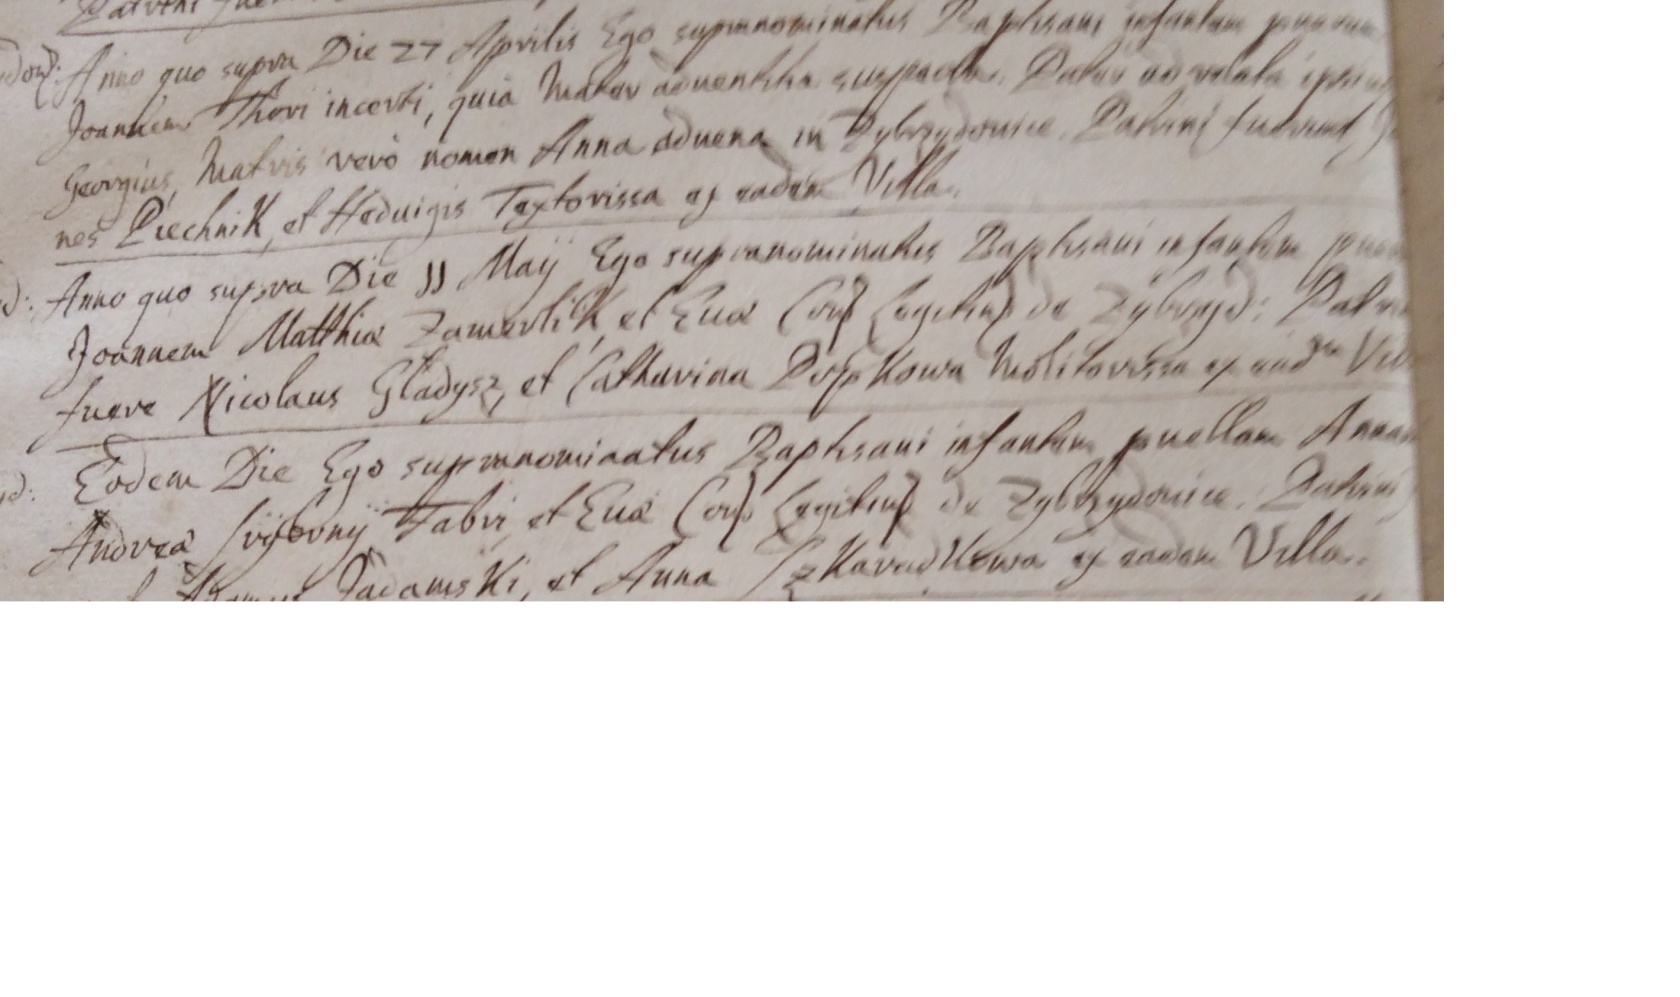 Patrini fue
Anno quo supra Die 27 Aprilis Ego supranominatus Baptisavi infantem puerum
Joannem Thori incerti, quia Mater adventitia suspecta. Pater ad relata ipsius
Georgius, Matris vero nomen Anna advena in Zybrzydovice. Patrini fuerunt Jo
nes Piechnik, et Heduigis Textorissa ex eadem Villa.
d: Anno quo supra Die 11 Maÿ Ego supranominatus Baptisavi infantem puer
Joannem Matthiæ Zamertlik, et Euæ Conj Legitim de Zybrzyd: Patrini
fuere Nicolaus Gladysz, et Catharina Molitorissa ex ead Vil
yd: Eodem Die Ego supranominatus Baptisavi infantem puellam Annam
Andreæ Fabri, et Euæ Conj Legitim de Zybrzydovice. Patrini
Jadamski, et Anna Szkaradkowa ex eadem Villa.